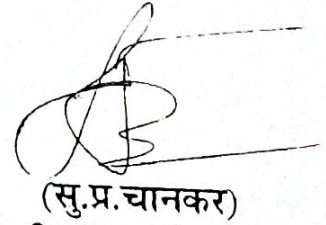 (सु.प्र.चानकर)